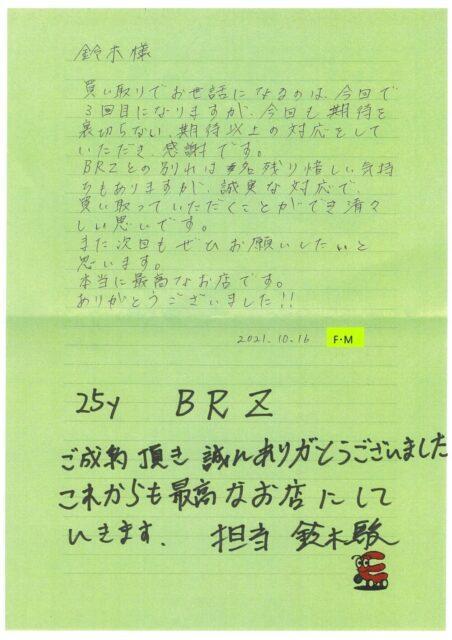 鈴木様
買い取りでお世話になるのは、今回で
3回目になりますが、今回も期待を
裏切らない、期待以上の対応をして
いただき、感謝です。
BRZとの別れは名残り惜しい気持
ちもありますが、誠実な対応で、
買い取っていただくことができ清々
しい思いです。
また次回もぜひお願いしたいと
思います。
本当に最高なお店です。
ありがとうございました!!
2021.10.16 F・M
25y BRZ
ご成約頂き誠にありがとうございました
これからも最高なお店にして
いきます. 担当 鈴木駿